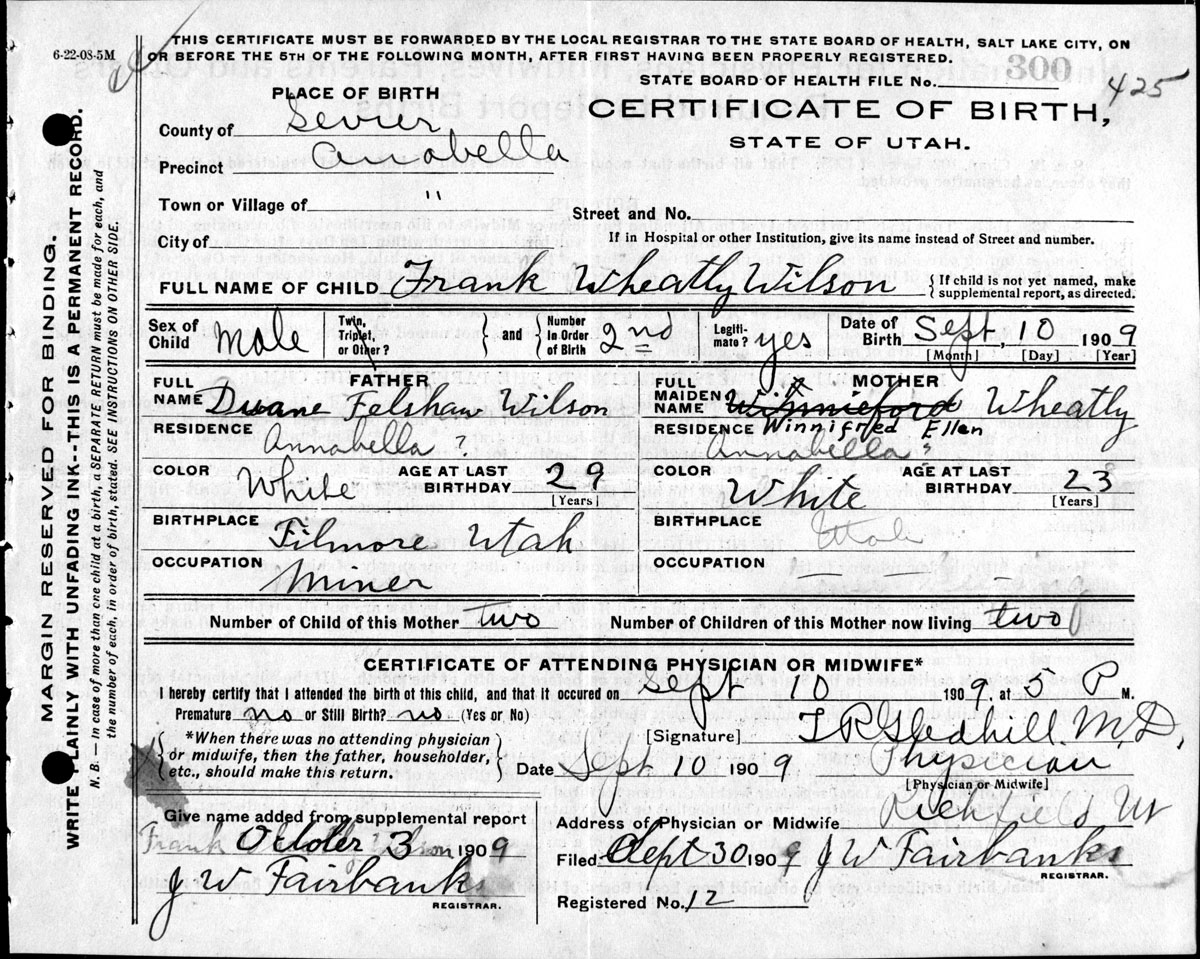 6-22-08-5M
THIS CERTIFICATE MUST BE FORWARDED BY THE LOCAL REGISTRAR TO THE STATE BOARD OF HEALTH, SALT LAKE CITY, ON
OR BEFORE THE 5TH OF THE FOLLOWING MONTH, AFTER FIRST HAVING BEEN PROPERLY REGISTERED.
STATE BOARD OF HEALTH FILE No. 300
425
PLACE OF BIRTH
CERTIFICATE OF BIRTH,
STATE OF UTAH.
County of Sevier
Precinct Annabella
Town or Village of "
Street and No.
City of
If in Hospital or other Institution, give its name instead of Street and number.
FULL NAME OF CHILD Frank Wheatly Wilson { If child is not yet named, make supplemental report, as directed.
Sex of Child Male Twin, Triplet, or Other? } and { Number in Order of Birth 2nd Legiti-mate? yes Date of Birth Sept. 10 1909
[Month] [Day] [Year]
FULL NAME FATHER Duane Felshaw Wilson
FULL MAIDEN NAME MOTHER Winnieford Wheatly
Winnifred Ellen
RESIDENCE Annabella ?
RESIDENCE Annabella ?
COLOR White AGE AT LAST BIRTHDAY 29 [Years]
COLOR White AGE AT LAST BIRTHDAY 23 [Years]
BIRTHPLACE Filmore Utah
BIRTHPLACE Utah
OCCUPATION Miner
OCCUPATION
Number of Child of this Mother two Number of Children of this Mother now living two
CERTIFICATE OF ATTENDING PHYSICIAN OR MIDWIFE*
I hereby certify that I attended the birth of this child, and that it occured on Sept 10 1909, at 5 P M.
Premature no or Still Birth? no (Yes or No)
{ *When there was no attending physician or midwife, then the father, householder, etc., should make this return. }
[Signature] T R Gledhill M.D.
Date Sept 10 1909 Physician
[Physician or Midwife]
Give name added from supplemental report
Address of Physician or Midwife Richfield Ut
Frank Wilson
October 3 1909
Filed Sept 30 1909 J W Fairbanks
REGISTRAR.
J W Fairbanks
REGISTRAR.
Registered No. 12
MARGIN RESERVED FOR BINDING.
WRITE PLAINLY WITH UNFADING INK--THIS IS A PERMANENT RECORD.
N. B. — In case of more than one child at a birth, a SEPARATE RETURN must be made for each, and
the number of each, in order of birth, stated. SEE INSTRUCTIONS ON OTHER SIDE.